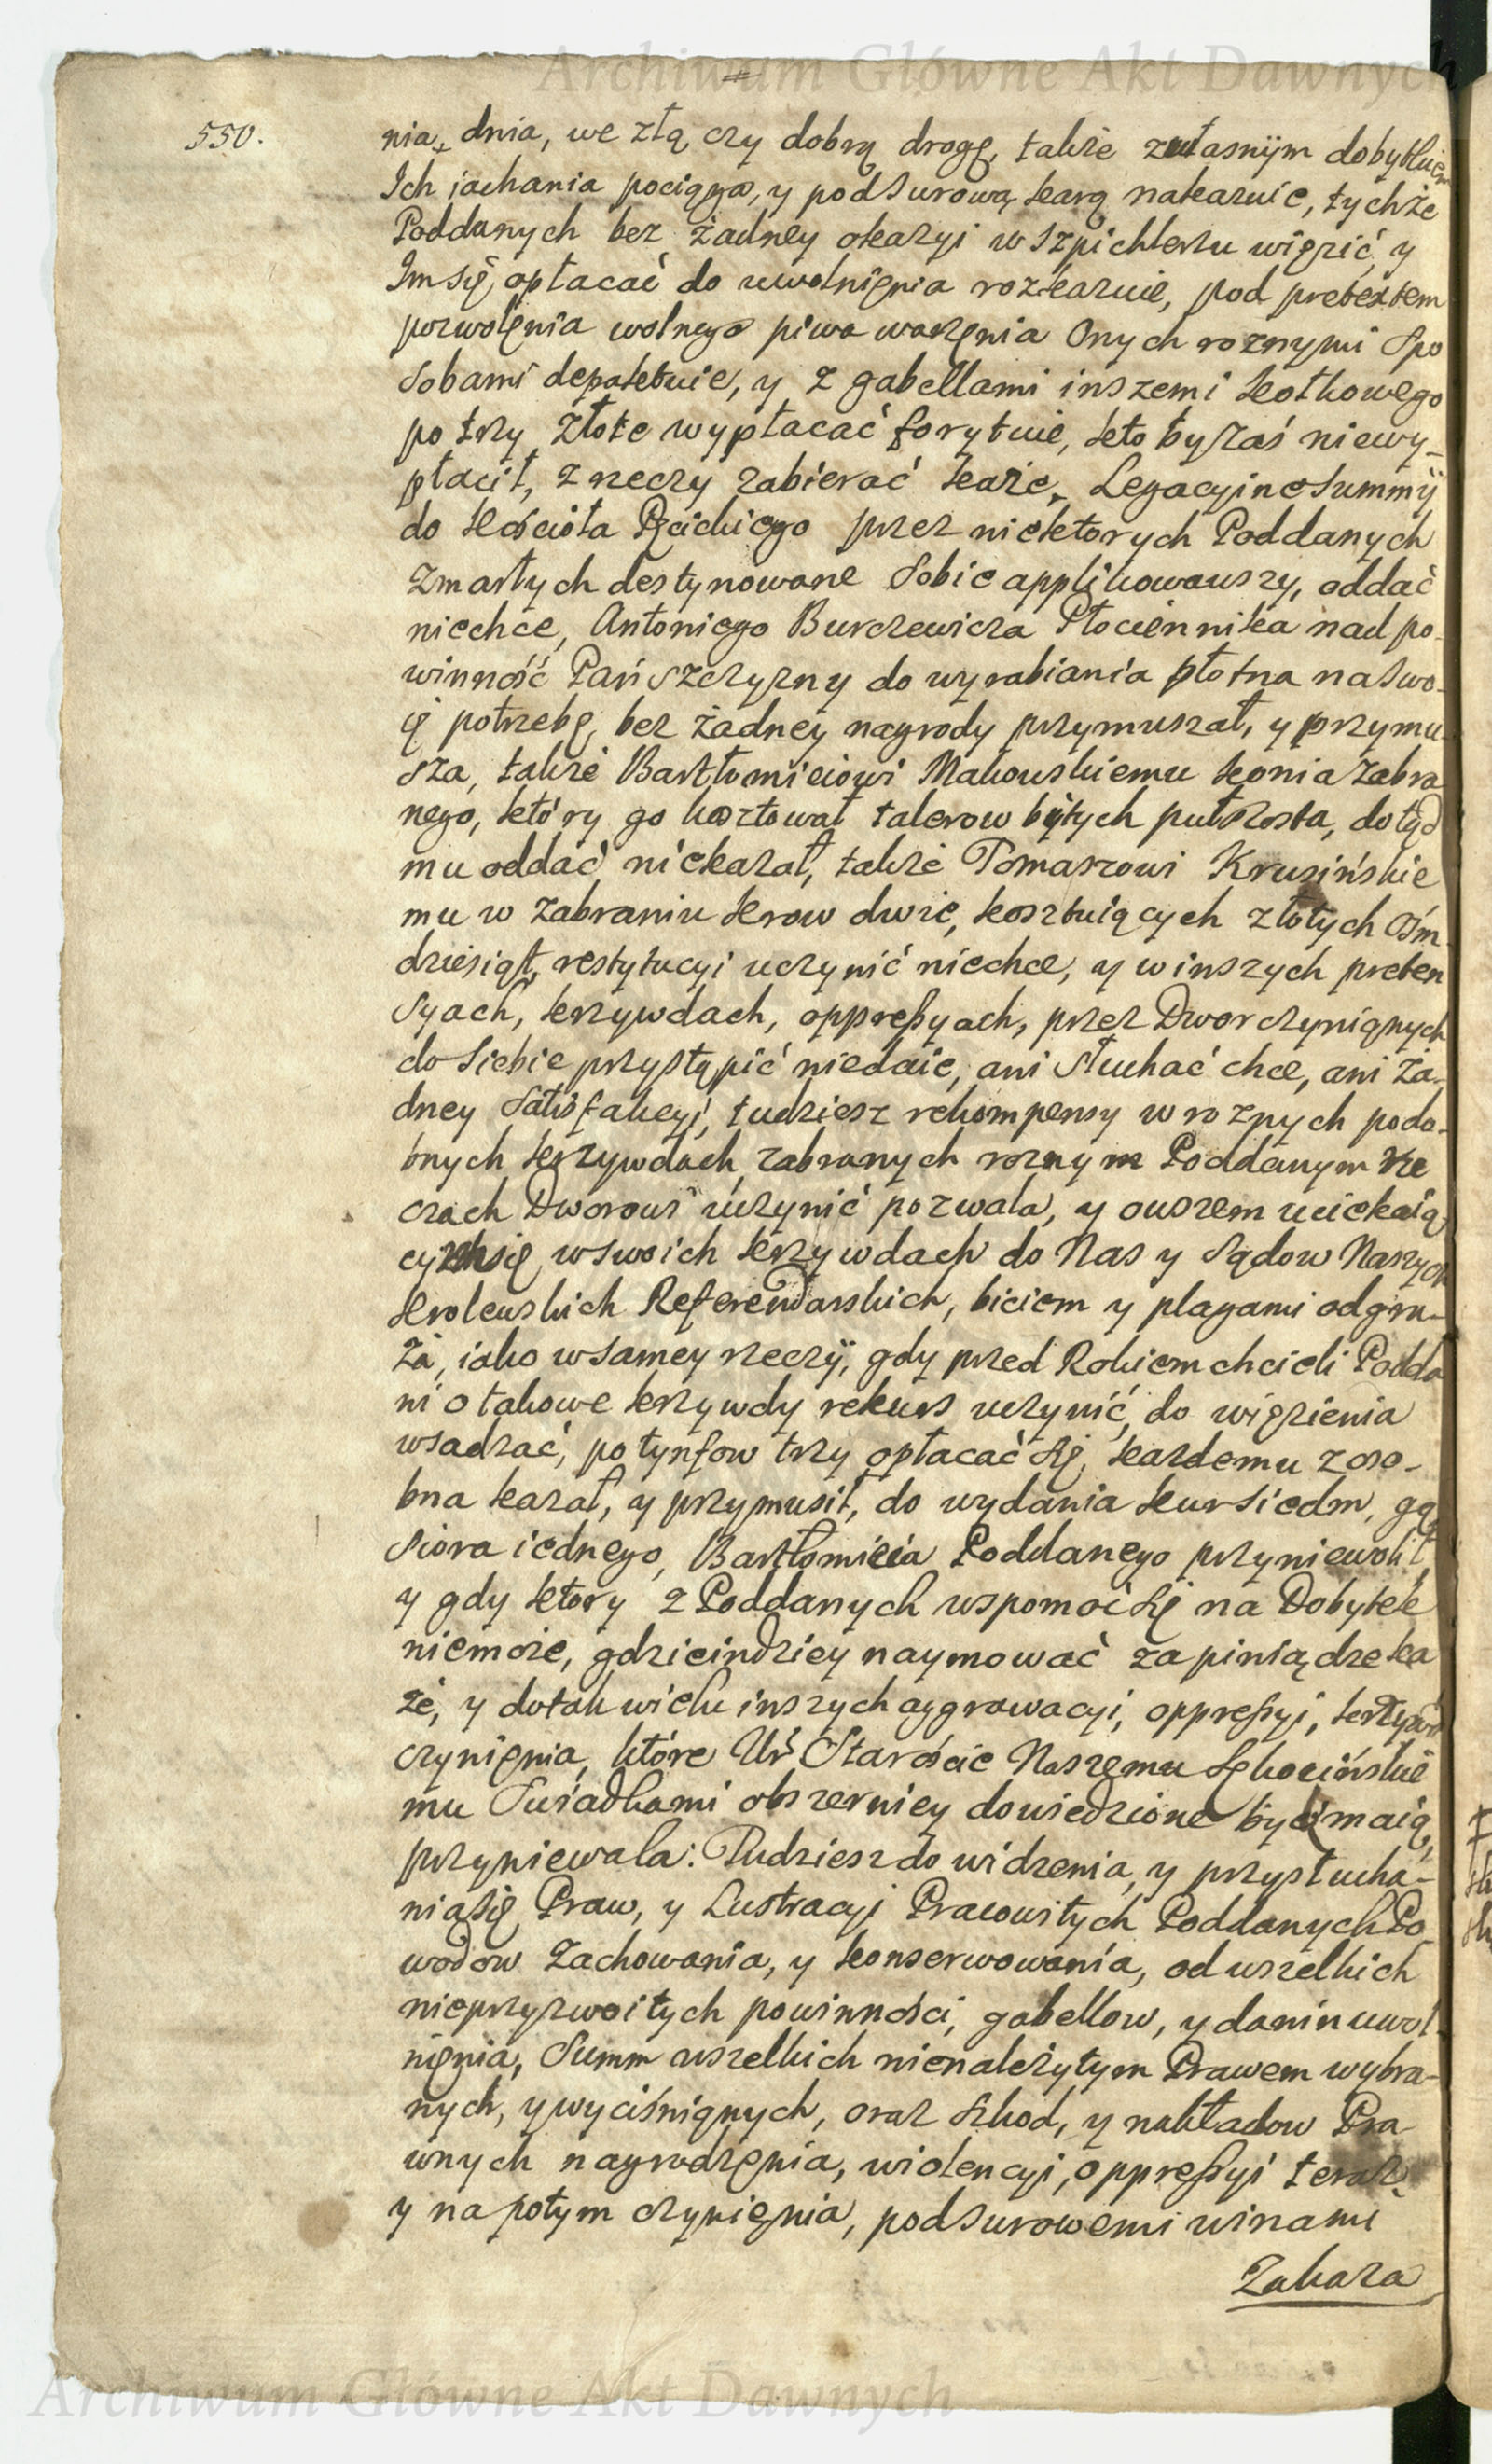 Archiwum Główne Akt Dawnych
550.
nia, dnia, we złą czy dobrą drogę, także własnÿm dobytkiem
Ich iachania pociąga, y pod surową karą nakazuie, tychże
Poddanych bez żadney okazyi w szpichlerzu więzić, y
Im się opłacać do uwolnięnia rozkazuie, pod pretextem
pozwolęnia wolnego piwa warzęnia Onych roznymi Spo
sobami depaktuie, y z gabellami inszemi kotkowego
po trzy złote wypłacać forytuie, ktoby zaś niewy-
płacił, z rzeczy zabierać każe, Legacyine Summÿ
do Kościoła Pzcickiego przez niektorych Poddanych
zmarłych destynowane sobie applikowawszy, oddać
niechce, Antoniego Burczewicza Płociennika nad po-
winność Pańszczyzny do wyrabiania płotna na swo-
ię potrzebę, bez żadney nagrody przymuszał, y przymu-
sza, także Bartłomieiowi Makowskiemu konia zabra
nego, który go kosztował talerow bitych pułszosta, dotyd
mu oddać niekazał, także Tomaszowi Krusińskie
mu w zabraniu krow dwie, kosztuiących złotych ośm-
dziesiąt, restytucyi uczynić niechce, y w inszych preten
syach, krzywdach, oppressyach, przez Dwor czynionych
do siebie przystąpić niedaie, ani słuchać chce, ani ża-
dney satisfakcyi, tudziesz rekompensy w roznych podo-
bnych krzywdach, zabranych roznym Poddanym rze
czach Dworowi uczynić pozwala, y owszem uciekaią
cych się w swoich krzywdach do Nas y Sądow Naszych
Krolewskich Referendarskich, biciem y plagami odgra-
ża, iako w samey rzeczÿ, gdy przed Rokiem chcieli Podda
ni o takowe krzywdy rekurs uczynić, do więzienia
wsadzać, po tynfow trzy opłacać się, kazdemu z oso-
bna kazał, y przymusił, do wydania kur siedm, gą-
siora iednego, Bartłomieia Poddanego przyniewolił,
y gdy ktory z Poddanych wspomoc się na Dobytek
niemoże, gdzieindziey naymować za piniądze ka
że, y do tak wielu inszych aggrawacyi, oppressyi, krzywd
czynięnia, które Ur. Staroście Naszemu Sękocińskie
mu Swiadkami obszerniey dowiedzione być maią,
przyniewala: Tudziesz do widzenia, y przysłucha-
nia się Praw, y Lustracyi Pracowitych Poddanych Po
wodow zachowania, y konserwowania, od wszelkich
nieprzyzwoitych powinności, gabellow, y danin uwol-
nięnia, Summ wszelkich nienależytym Prawem wybra-
nych, y wyciśnionych, oraz szkod, y nakładow Pra
wnych nagrodzęnia, wiolencyi, oppressyi teraz
y napotym czynięnia, pod surowemi winami
Zakaza
Archiwum Główne Akt Dawnych